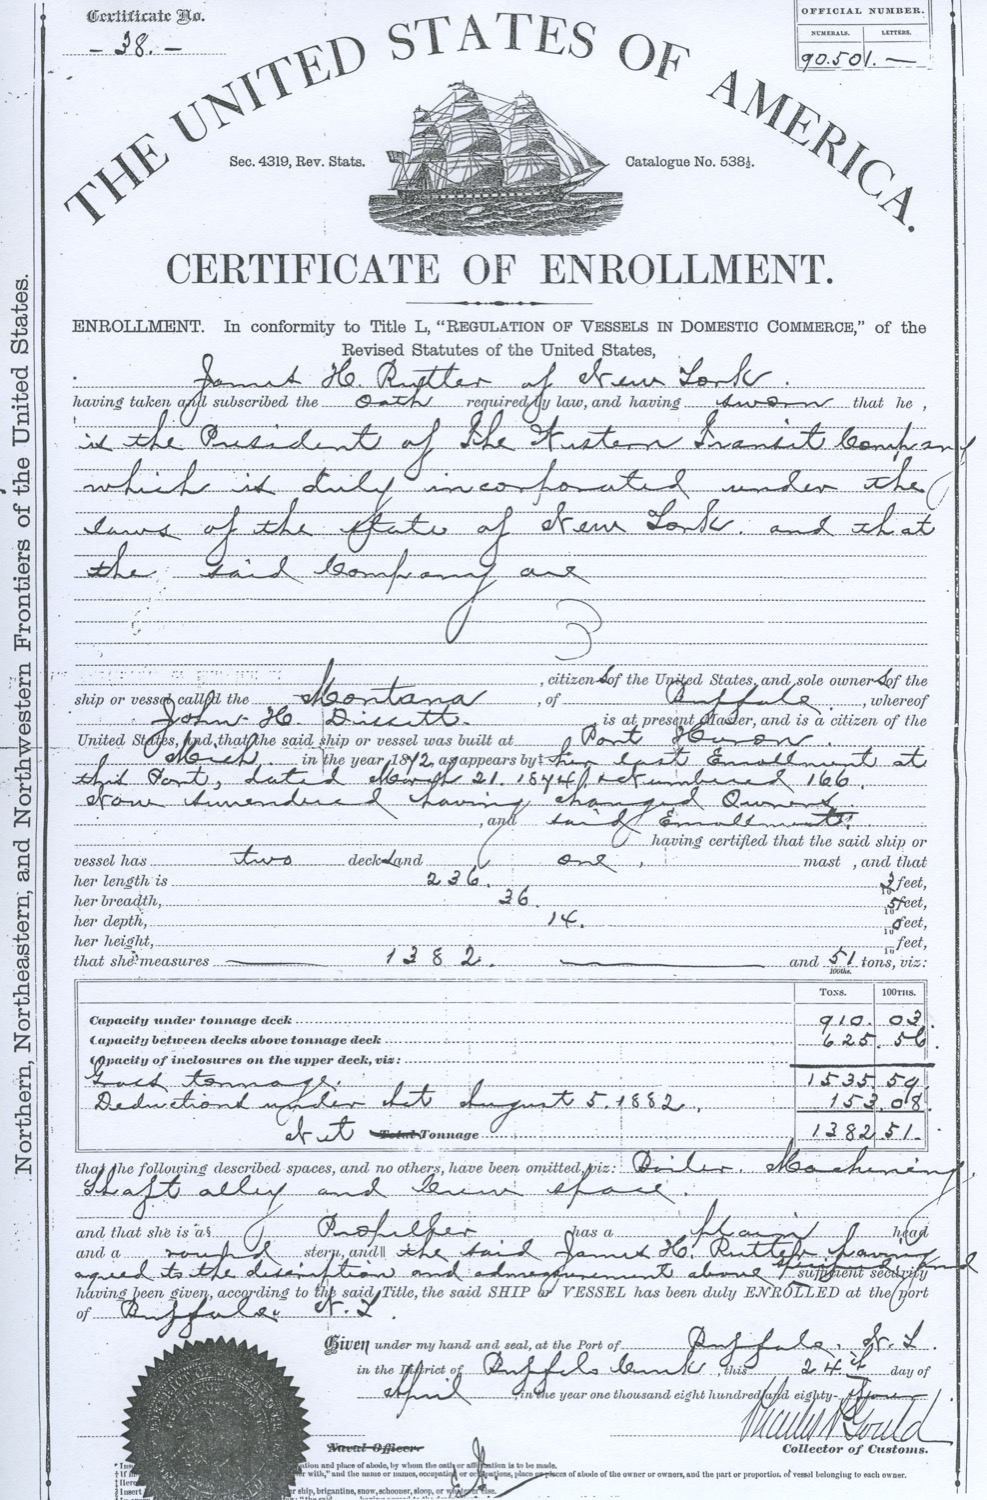 Certificate No.
- 38. -
OFFICIAL NUMBER.
NUMERALS. LETTERS.
90.501. —
THE UNITED STATES OF AMERICA.
Sec. 4319, Rev. Stats.
Catalogue No. 538½.
CERTIFICATE OF ENROLLMENT.
ENROLLMENT. In conformity to Title L, "REGULATION OF VESSELS IN DOMESTIC COMMERCE," of the
Revised Statutes of the United States,
James H. Rutter of New York.
having taken and subscribed the oath required by law, and having sworn that he,
is the President of The Western Transit Company
which is duly incorporated under the
laws of the State of New York. and that
the said Company are
, citizens of the United States, and sole owners of the
ship or vessel called the Montana, of Buffalo, whereof
John H. is at present Master, and is a citizen of the
United States, and that the said ship or vessel was built at Port Huron.
Mich. in the year 1872, as appears by her last Enrollment at
this Port, dated March 21. 1874 Numbered 166.
Now surrendered having changed Owners.
, and said Enrollment
having certified that the said ship or
vessel has two decks and one mast, and that
her length is 236. 3/10 feet,
her breadth, 36. 5/10 feet,
her depth, 14. 0/10 feet,
her height, 10 feet,
that she measures 1382. and 51/100ths. tons, viz:
TONS. 100THS.
Capacity under tonnage deck 910. 03.
Capacity between decks above tonnage deck 625. 56
Capacity of inclosures on the upper deck, viz:
Gross tonnage. 1535.59
Deductions under Act August 5. 1882. 153.08.
Net Total Tonnage 1382 51.
that the following described spaces, and no others, have been omitted, viz: Boiler. Machinery,
Shaft alley and Crew space.
and that she is a Propeller has a plain head
and a round stern, and the said James H. Rutter having
agreed to the description and admeasurement above specified and sufficient security
having been given, according to the said Title, the said SHIP or VESSEL has been duly ENROLLED at the port
of Buffalo. N.Y.
Given under my hand and seal, at the Port of Buffalo, N.Y.
in the District of Buffalo Creek, this 24th day of
April in the year one thousand eight hundred and eighty-four
Gould
Naval Officer.
Collector of Customs.
Northern, Northeastern, and Northwestern Frontiers of the United States.
ation and place of abode, by whom the oath or affirmation is to be made.
or with," and the name or names, occupation or occupations, place or places of abode of the owner or owners, and the part or proportion of vessel belonging to each owner.
† Here
‡ Insert
or ship, brigantine, snow, schooner, sloop, or whatever else.